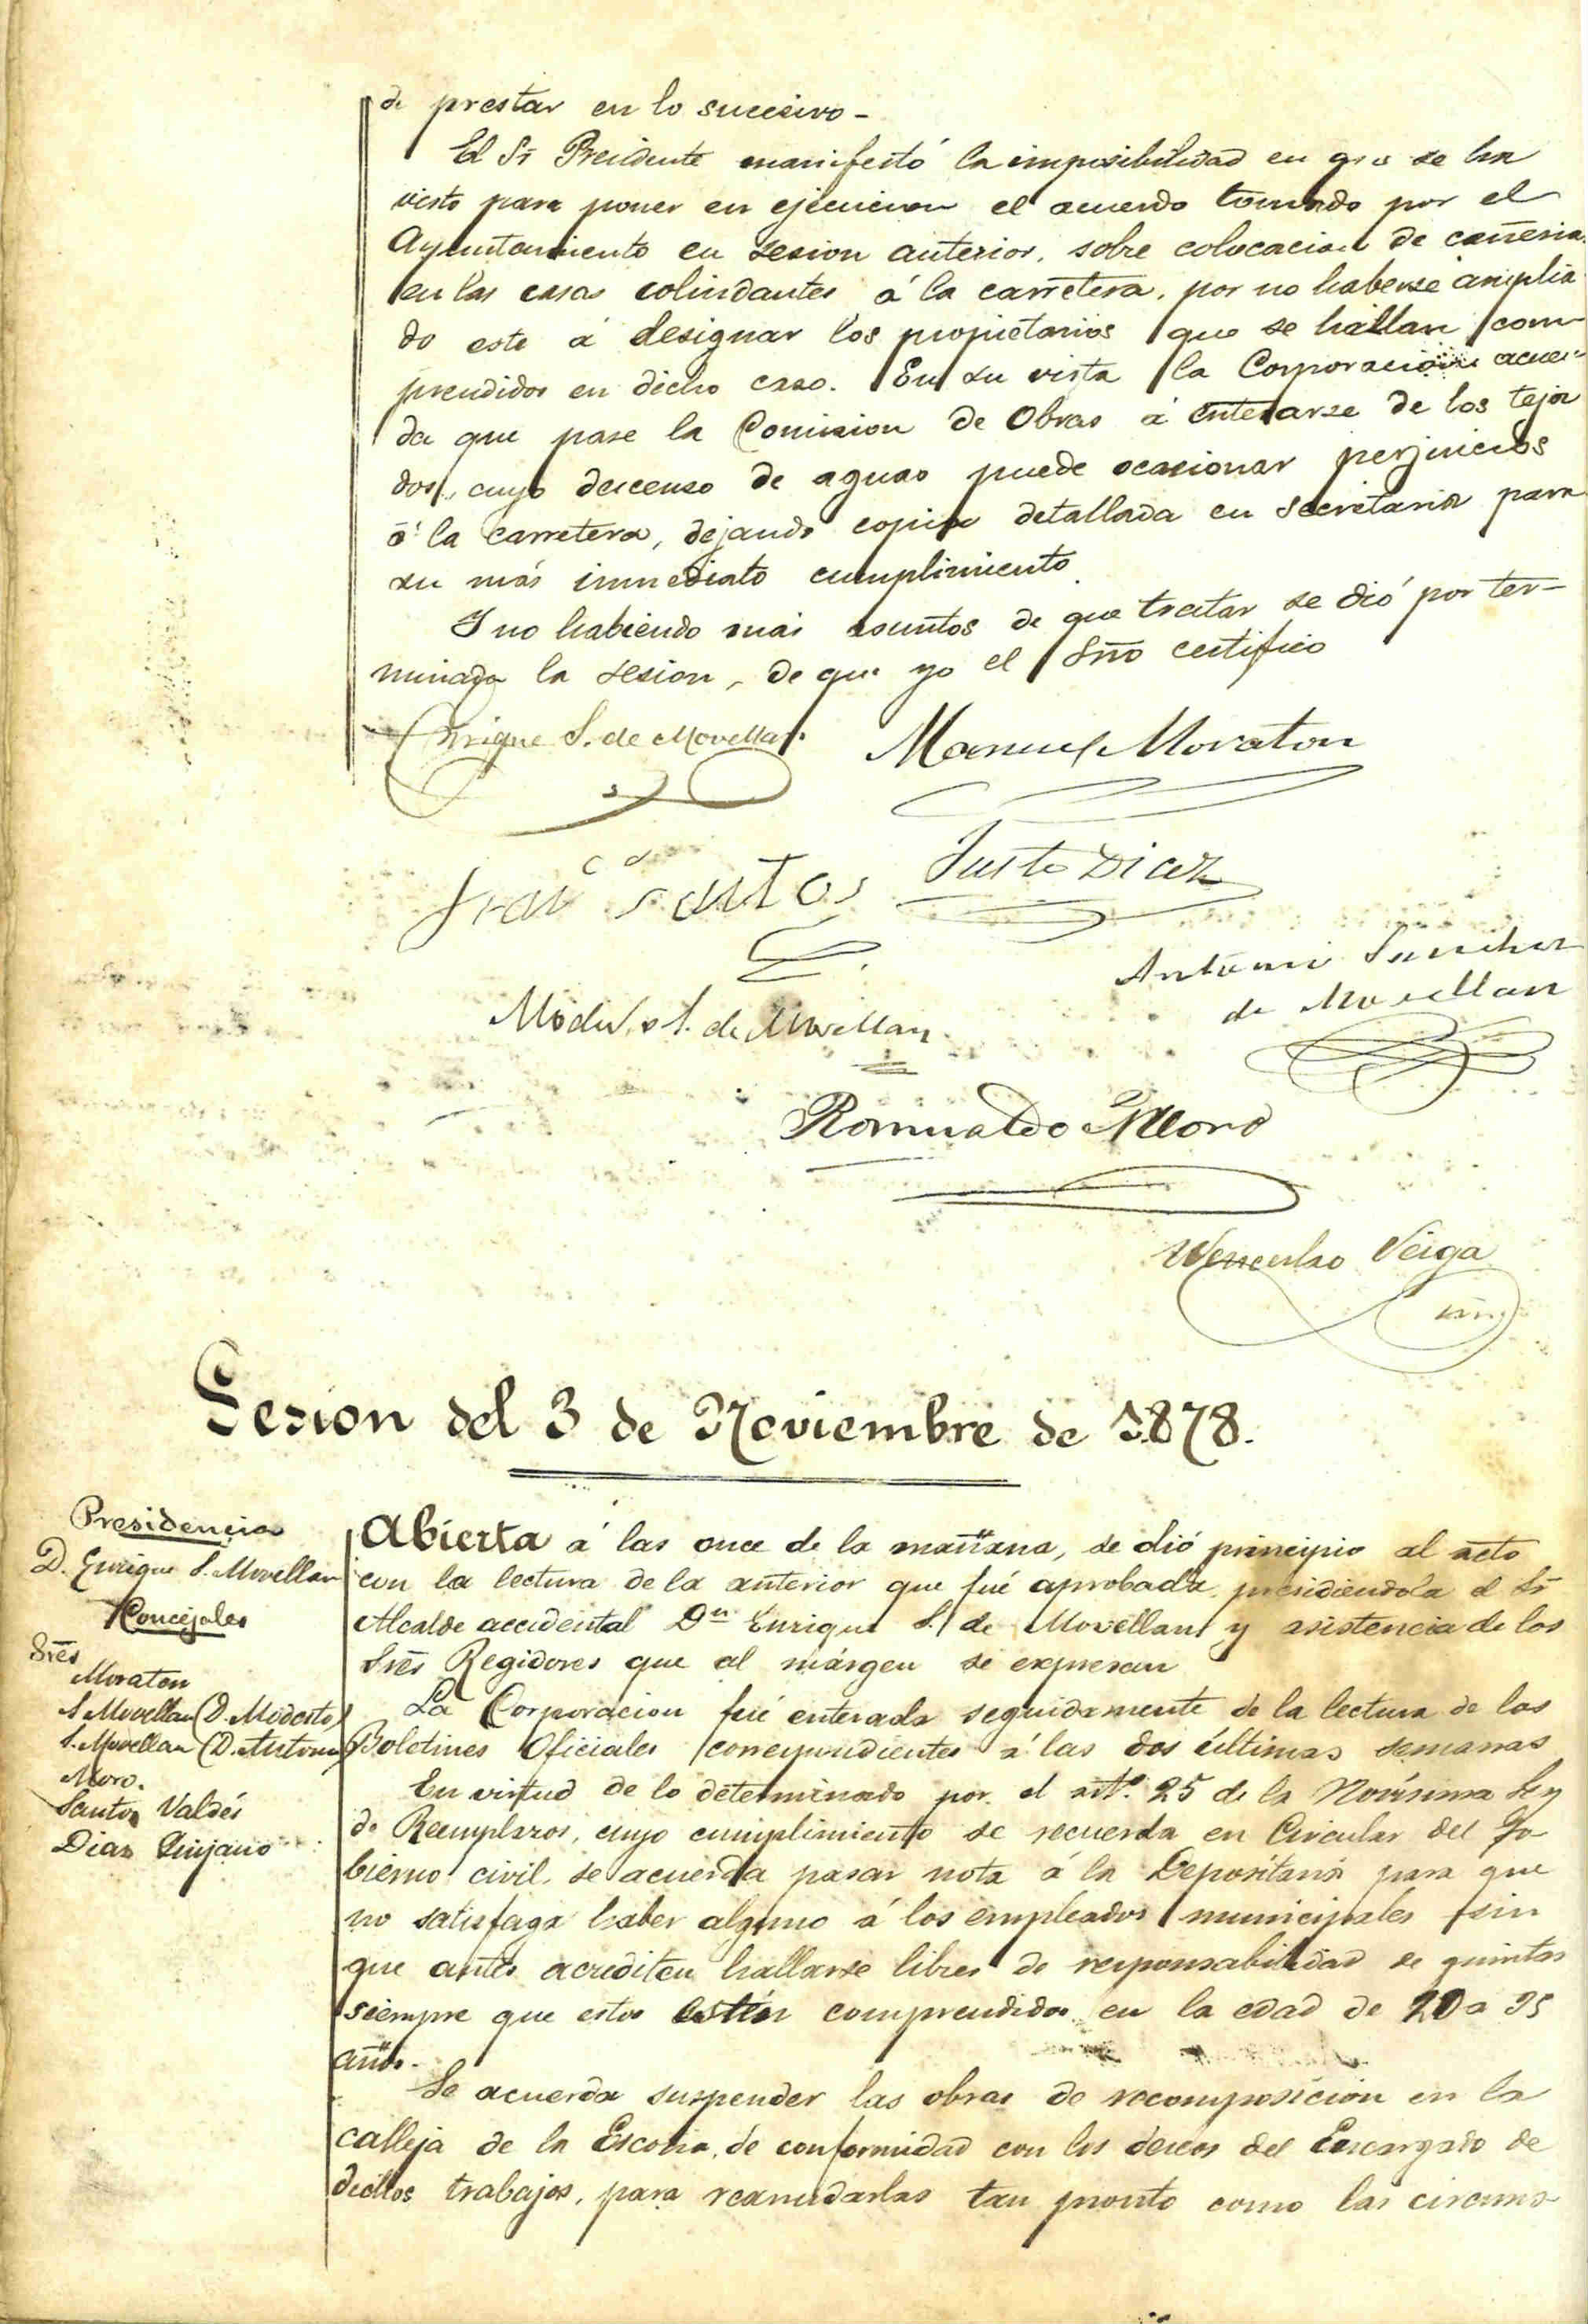 de prestar en lo sucesivo -
El Sr Presidente manifestó la imposibilidad en que se ha
visto para poner en ejecucion el acuerdo tomado por el
Ayuntamiento en sesion anterior, sobre colocacion de cañeria
en las casas colindantes á la carretera, por no haberse amplia
do este á designar los propietarios que se hallan com
prendidos en dicho caso. En su vista la Corporacion acuer-
da que pase la Comision de Obras á enterarse de los teja
dos, cuyo descenso de aguas puede ocasionar perjuicios
á la carretera, dejando copia detallada en secretaria para
su más inmediato cumplimiento
Y no habiendo más asuntos de que tratar se dió por ter-
minada la sesion, de que yo el Srio certifico
Enrique S. de Movellan.
Manuel Moraton
Franco Santos
Justo Diaz
Antonio Sanchez
de Movellan
Modesto S. de Movellan
Romualdo Moro
Wenceslao Veiga
Sesion del 3 de Noviembre de 1878.
Presidencia
D. Enrique S. Movellan
Concejales
Sres
Moraton
S. Movellan (D. Modesto)
S. Movellan (D. Antonio)
Moro.
Santos Valdés
Diaz Quijano
Abierta á las once de la mañana, se dió principio al acto
con la lectura de la anterior que fué aprobada, presidiendola el Sr
Alcalde accidental Dn Enrique S. de Movellan y asistencia de los
Sres Regidores que al márgen se expresan
La Corporacion fué enterada seguidamente de la lectura de los
Boletines Oficiales correspondientes á las dos últimas semanas
En virtud de lo determinado por el artº. 25 de la Novísima Ley
de Reemplazos, cuyo cumplimiento se recuerda en Circular del Go-
bierno civil, se acuerda pasar nota á la Depositaria para que
no satisfaga haber alguno á los empleados municipales sin
que antes acrediten hallarse libres de responsabilidad de quintas
siempre que estos estén comprendidos en la edad de 20 a 35
años.
Se acuerda suspender las obras de recomposicion en la
calleja de la Escoria, de conformidad con los deseos del Encargado de
dichos trabajos, para reanudarlas tan pronto como las circuns-